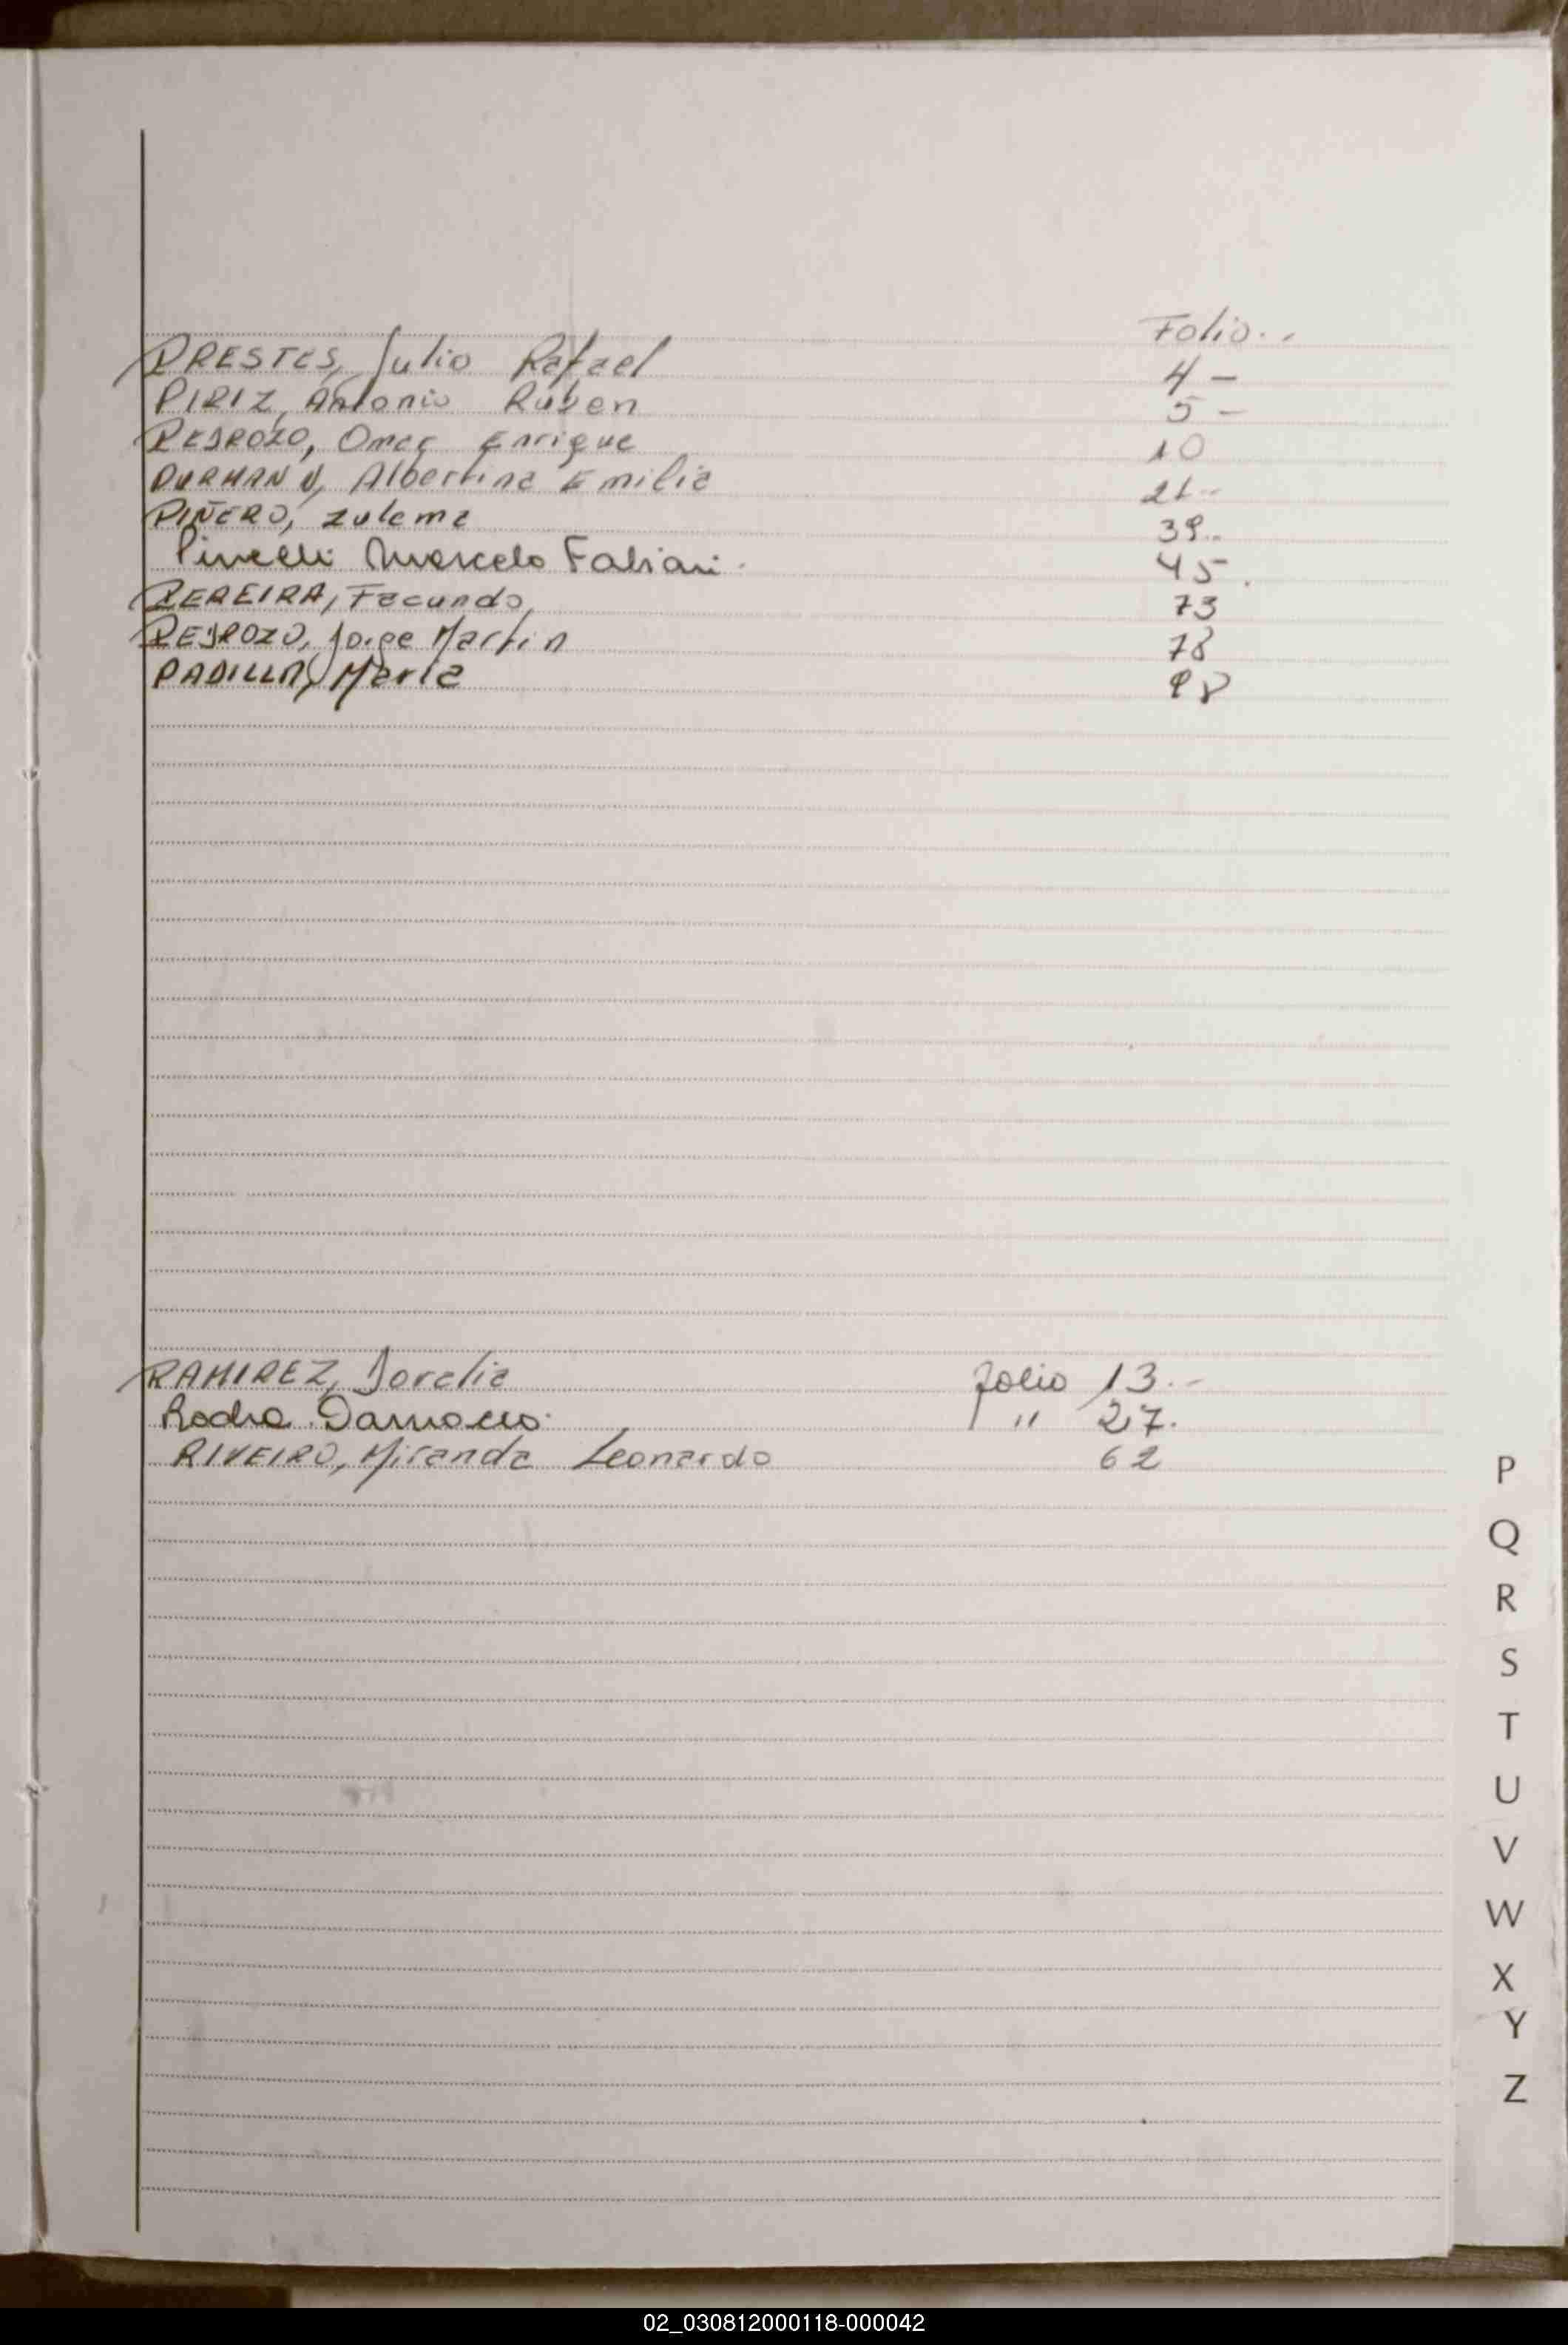 Folio..
PRESTES, Julio Rafael 4 -
PIRIZ, Antonio Ruben 5 -
PEDROZO, Omar Enrique 10
PURMANN, Albertina Emilia 21--
PIÑERO, Zulema 39..
Pinelli Marcelo Fabian. 45.
PEREIRA, Facundo, 73
PEDROZO, Jorge Martin 78
PADILLA, Maria 98
RAMIREZ, Dorelia folio 13.-
Rocha Damacio. " 27.
RIVEIRO, Miranda Leonardo 62
P
Q
R
S
T
U
V
W
X
Y
Z
02_030812000118-000042